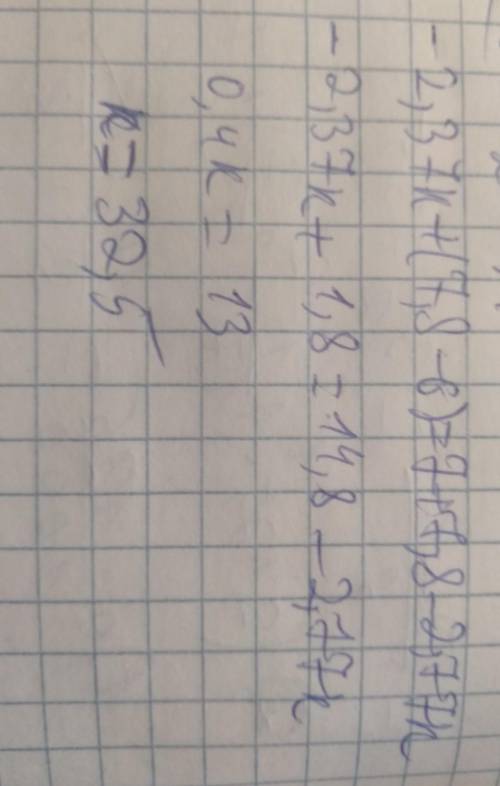 -2,37k+(7,8-6)=7+7,8-2,77k
-2,37k+1,8=14,8-2,77k
0,4k=13
k=32,5